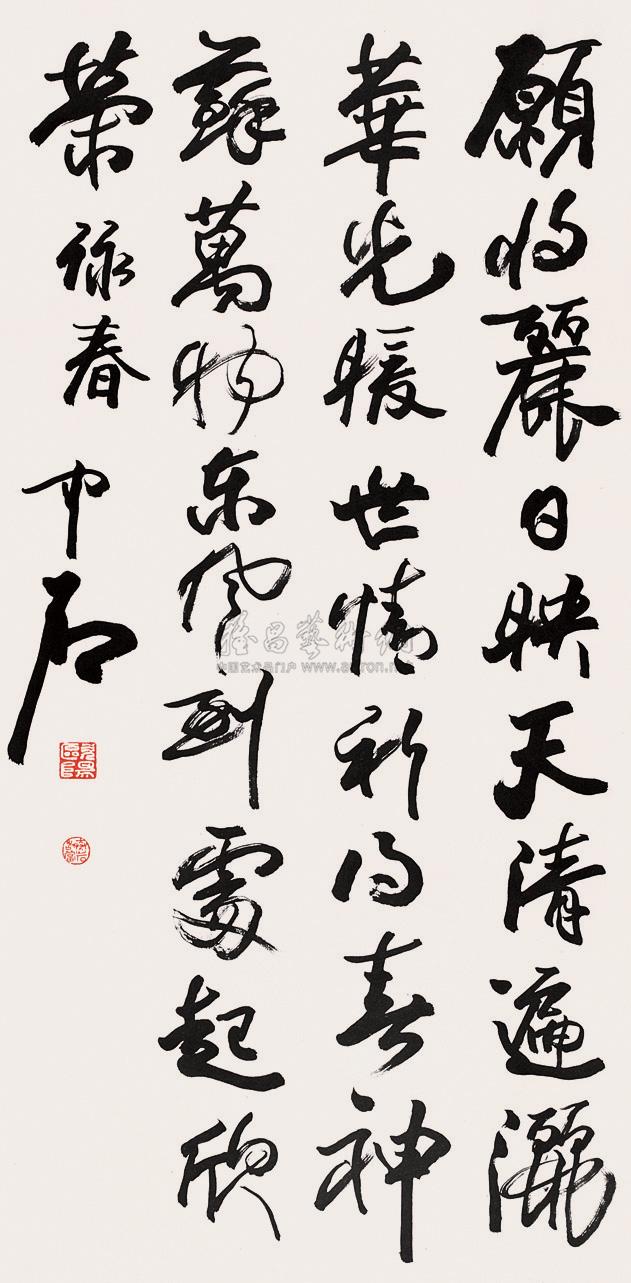 願將麗日映天清遍灑
華光暖世情祈得春神
蘇萬物東風到處起欣
榮 詠春 中石
雅昌藝術網
中国艺术品门户 www.artron.net